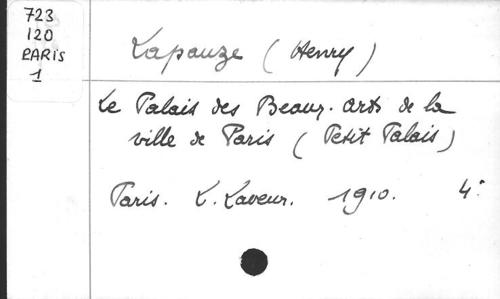 723
120
PARIS
1
Lapauze (Henry)
Le Palais des Beaux-arts de la
ville de Paris (Petit Palais)
Paris. L. Laveur. 1910. 4°